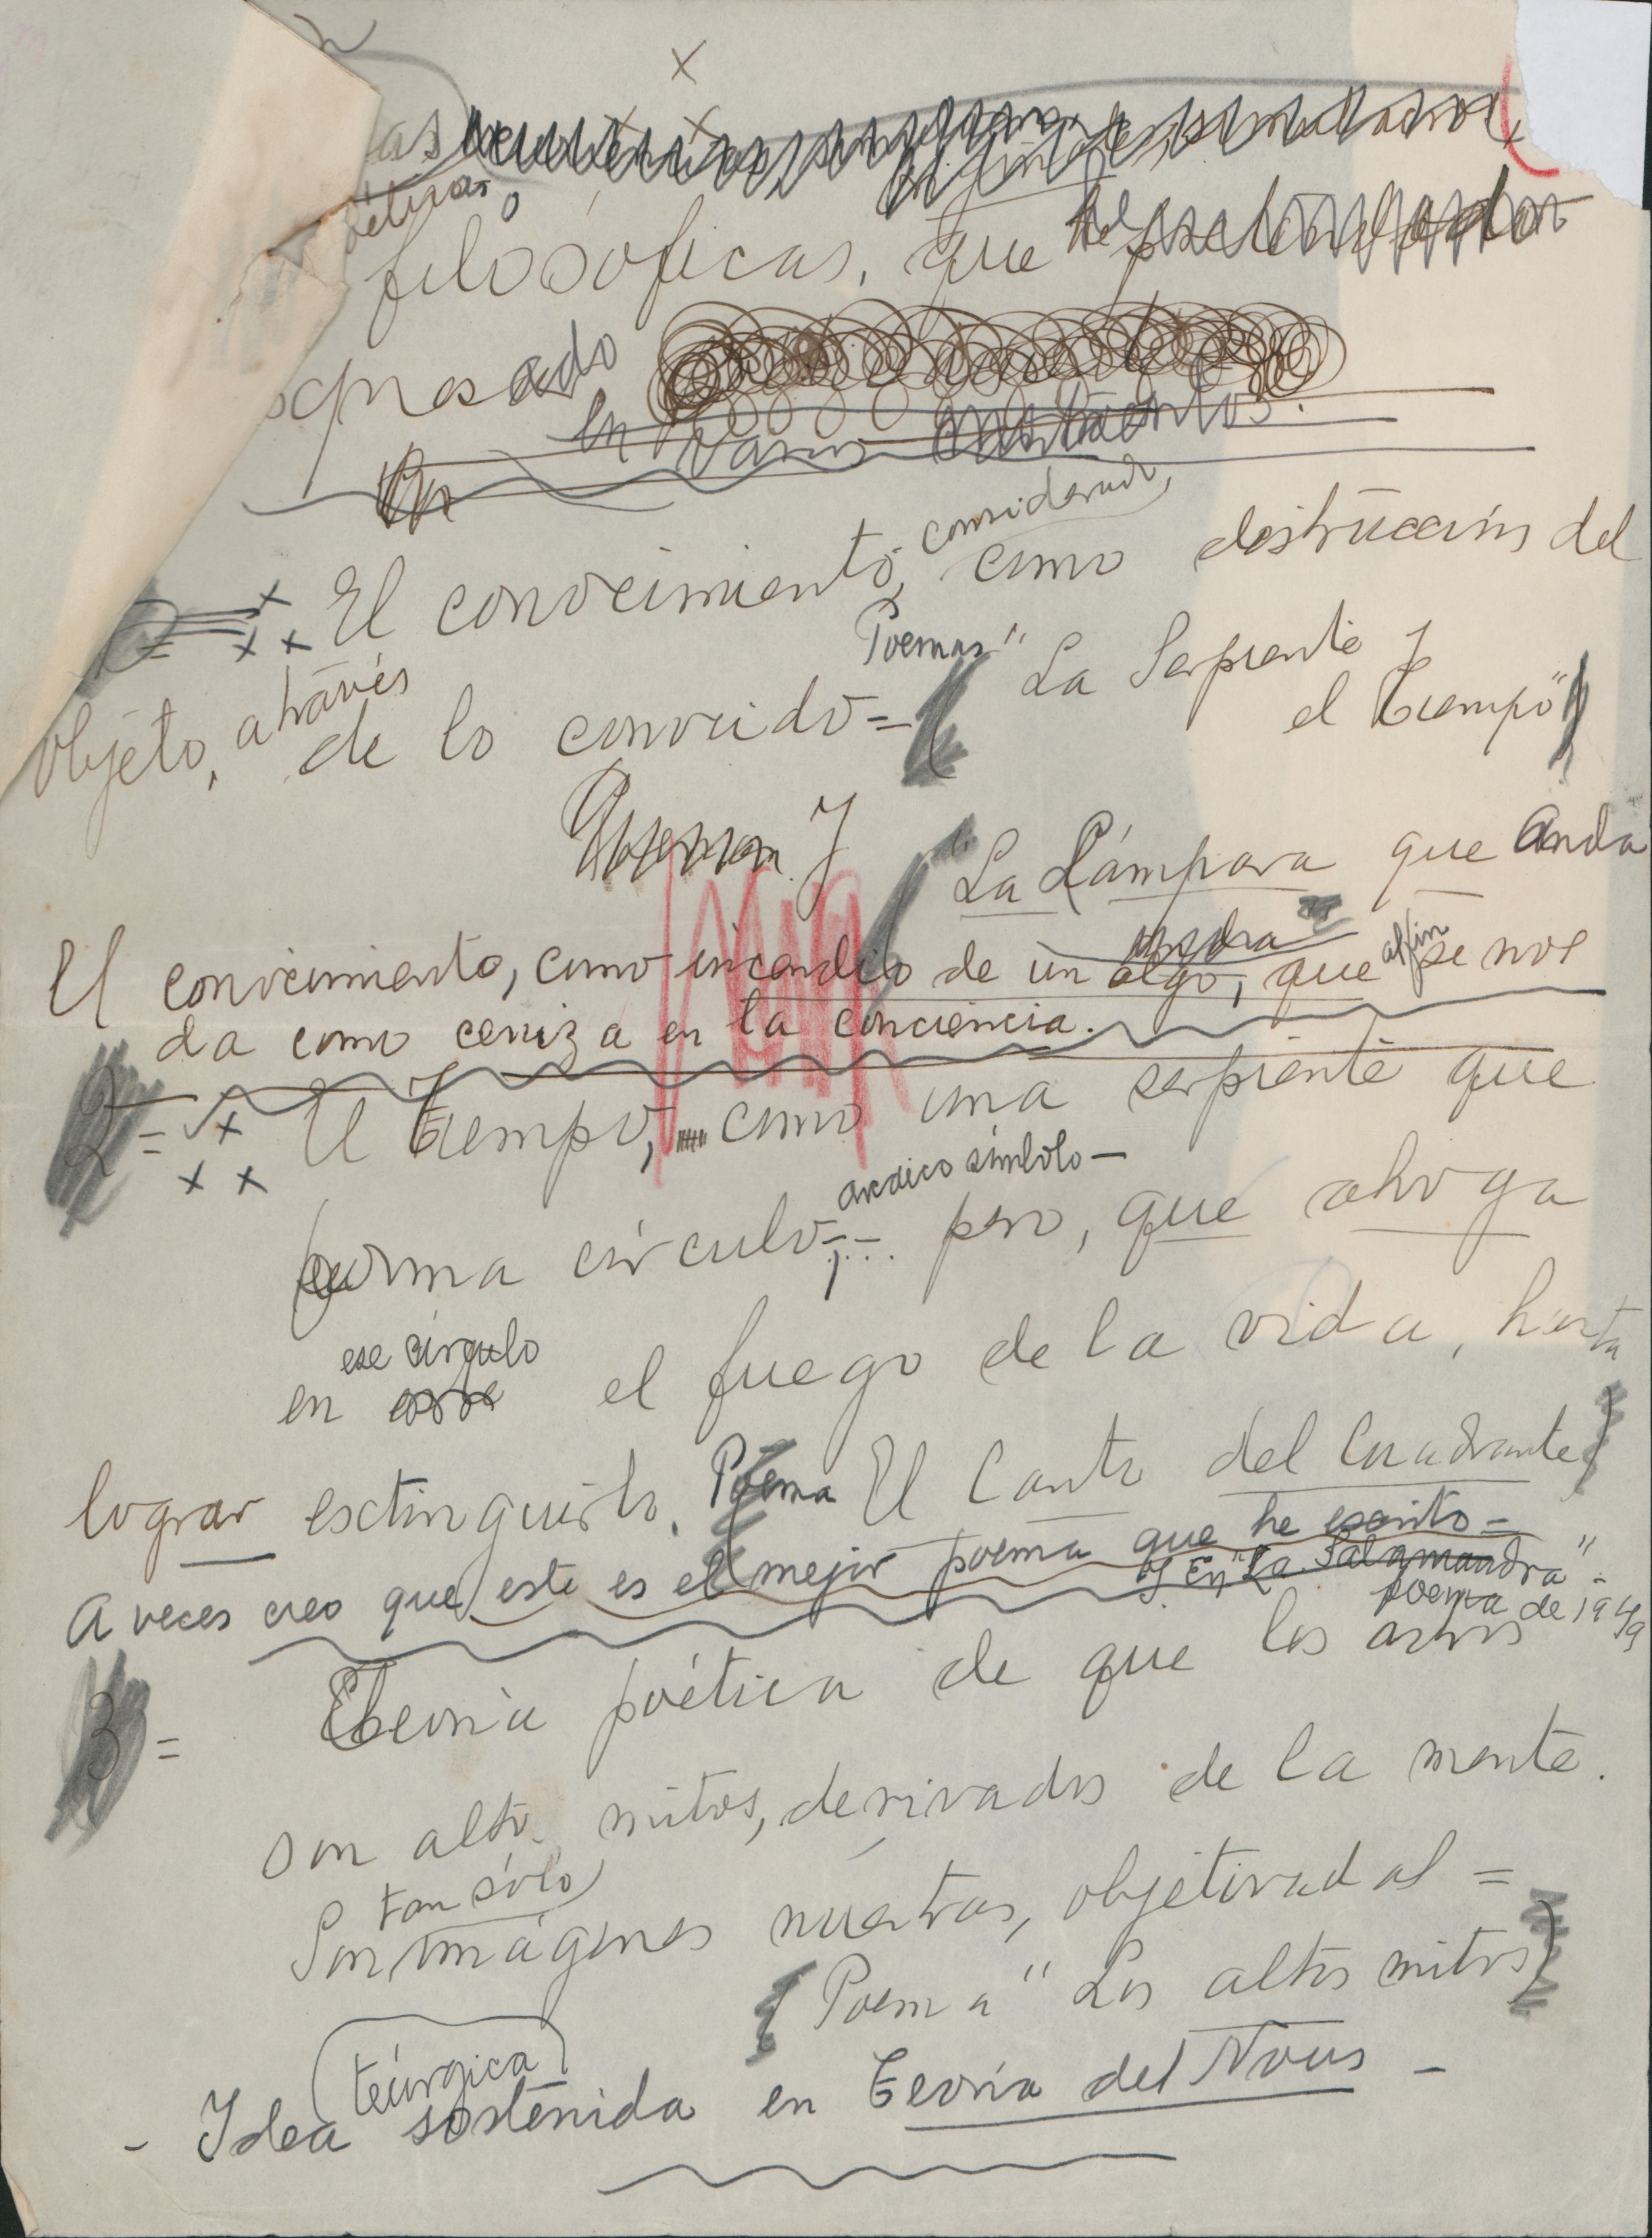 filosóficas, que he
ado
en varios
El conocimiento, considerado, como destrucción del
objeto, através de lo conocido = ( Poemas "La Serpiente y
el Tiempo")
y "La Lámpara que Anda
El conocimiento, como incendio de un algo, que al fin se nos
da como ceniza en la conciencia.
2 = El Tiempo, como una serpiente que
forma círculo, – arcaico símbolo – pero, que ahoga
en ese círculo el fuego de la vida, hasta
lograr extinguirlo. (Poema El Canto del Cuadrante)
A veces creo que este es el mejor poema que he escrito –
y En "La Salamandra" –
poema de 1949
3 = Teoría poética de que los astros
son altos mitos, derivados de la mente.
Son tan sólo imágenes nuestras, objetivadas =
(Poema "Los altos mitos)
- Idea teúrgica sostenida en Teoría del Nous –